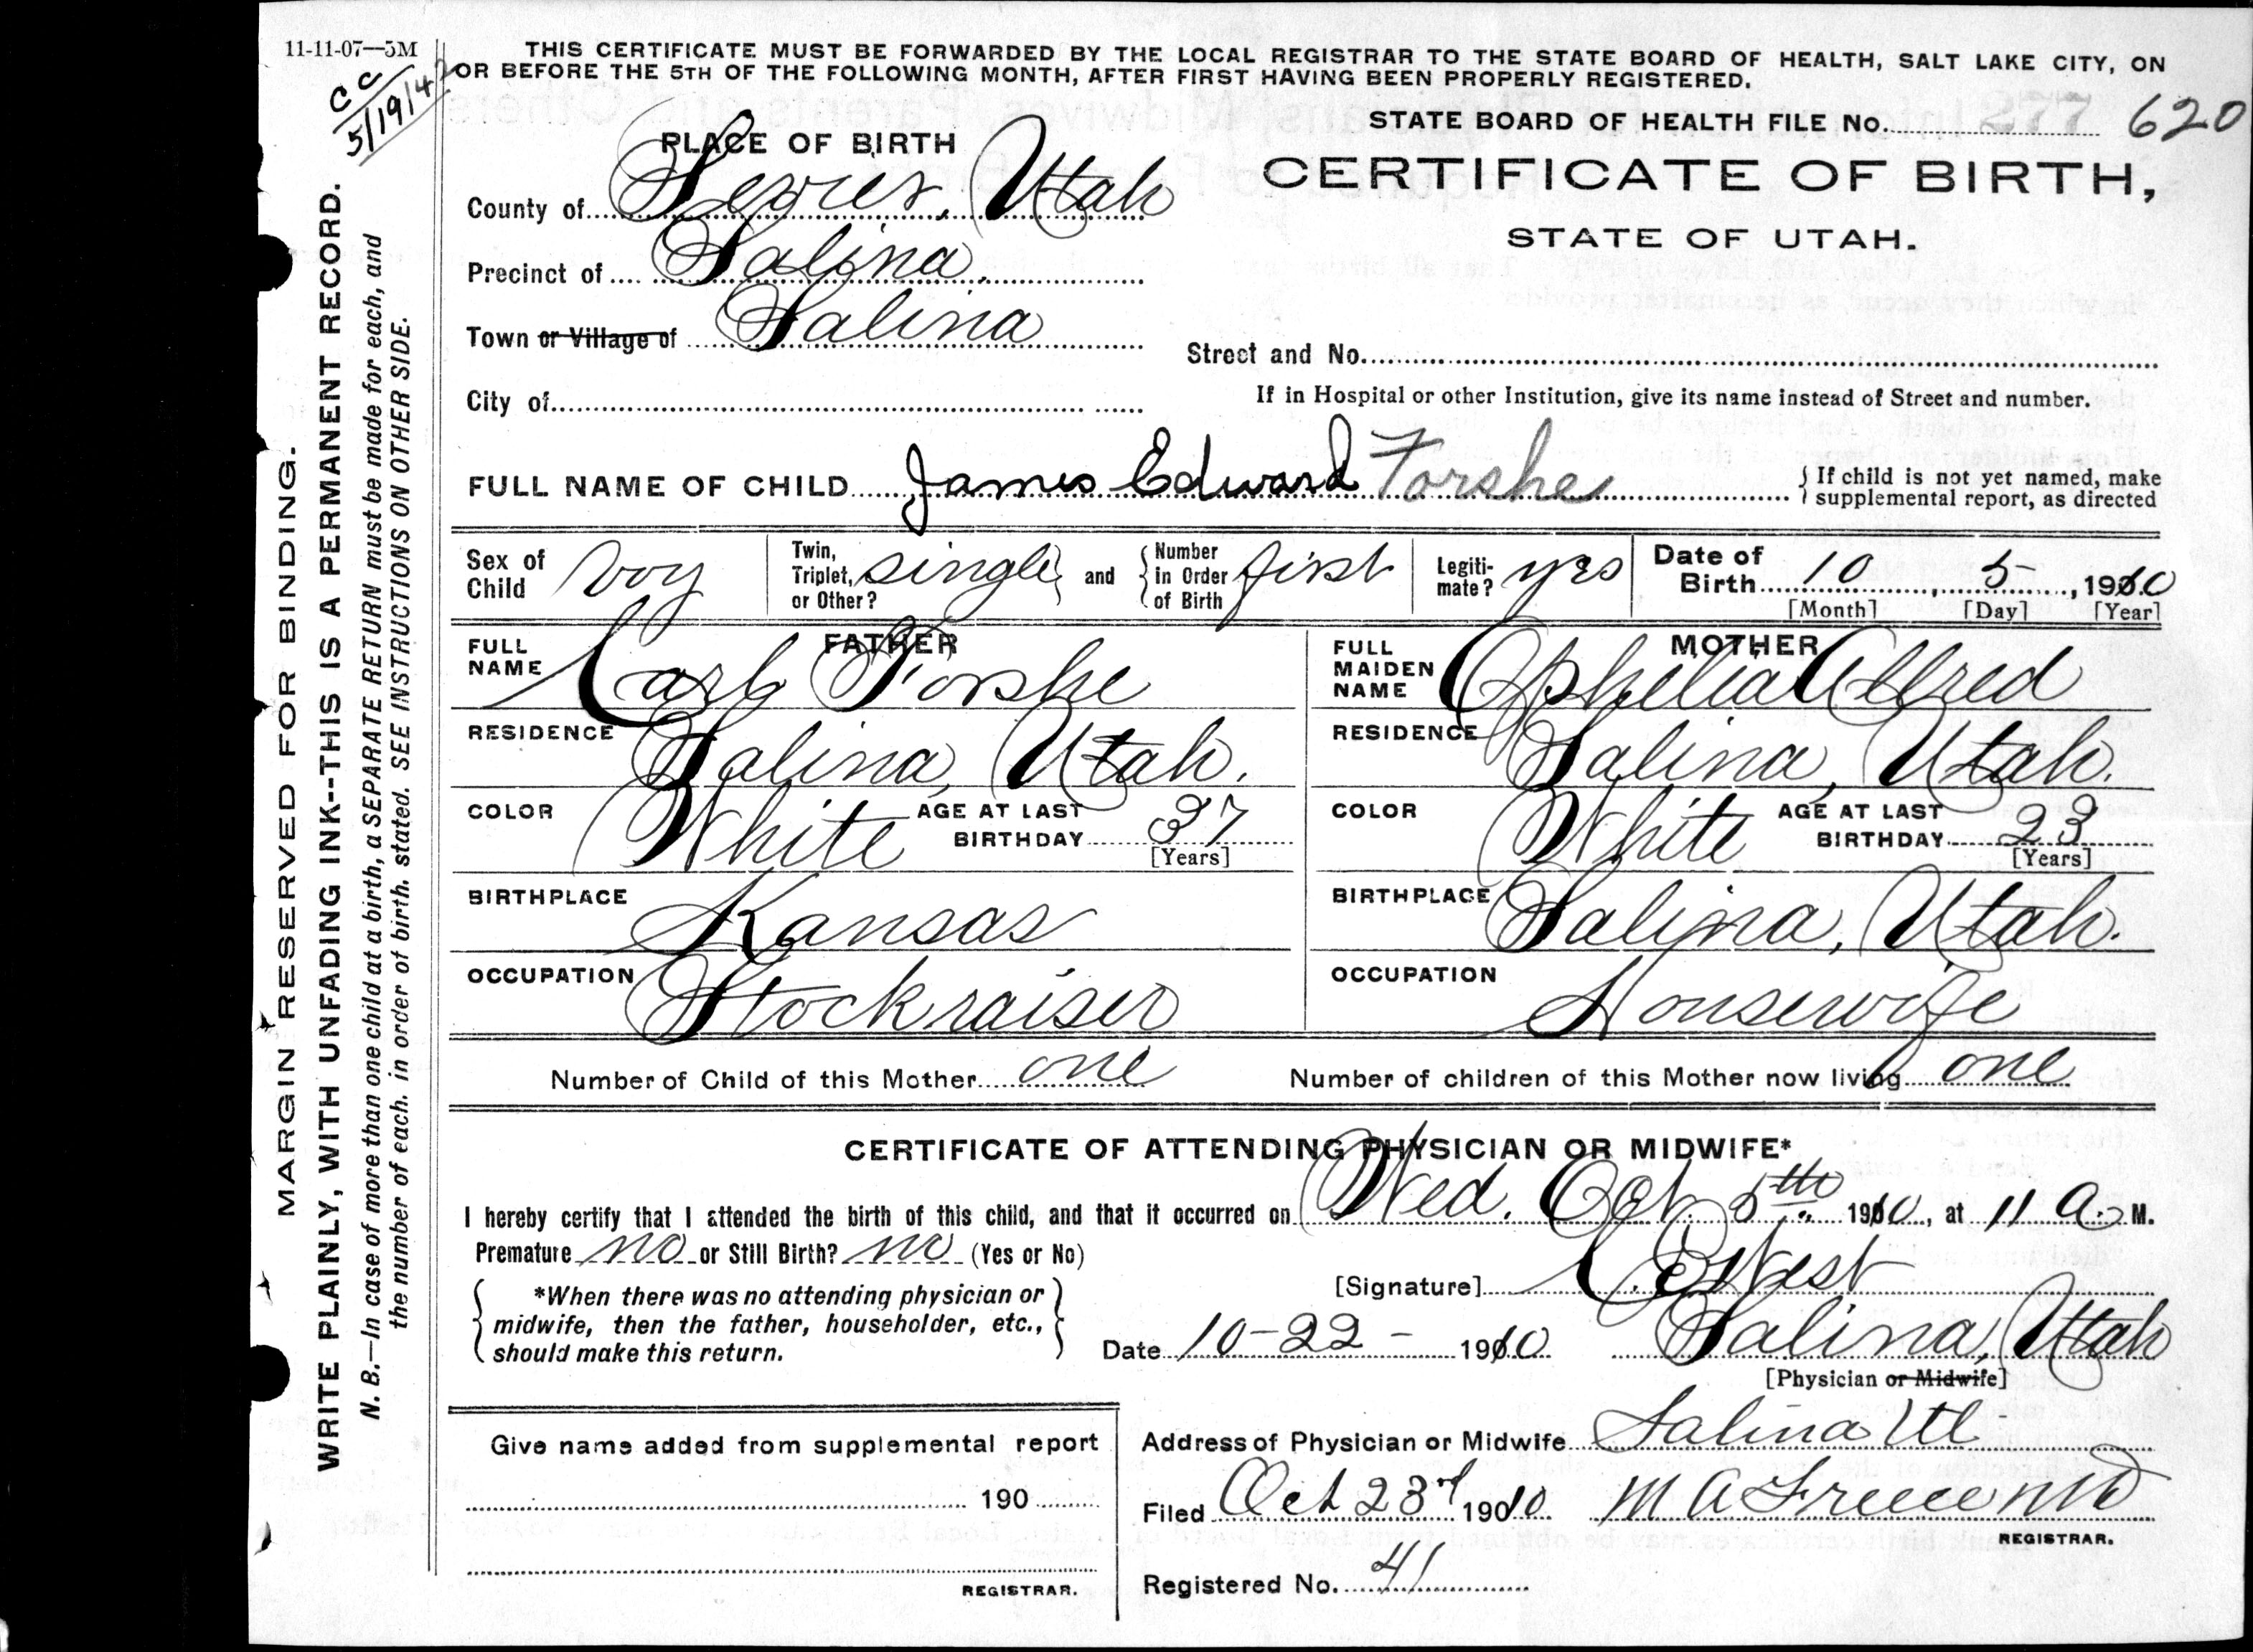 11-11-07—5M
CC
5/19/42
THIS CERTIFICATE MUST BE FORWARDED BY THE LOCAL REGISTRAR TO THE STATE BOARD OF HEALTH, SALT LAKE CITY, ON
OR BEFORE THE 5TH OF THE FOLLOWING MONTH, AFTER FIRST HAVING BEEN PROPERLY REGISTERED.
STATE BOARD OF HEALTH FILE No. 277 620
PLACE OF BIRTH
CERTIFICATE OF BIRTH,
STATE OF UTAH.
County of Sevier, Utah
Precinct of Salina.
Town or Village of Salina
Street and No.
City of
If in Hospital or other Institution, give its name instead of Street and number.
FULL NAME OF CHILD James Edward Forshe
{ If child is not yet named, make
supplemental report, as directed
Sex of Child boy
Twin, Triplet, or Other? single
and Number in Order of Birth first
Legiti-mate? yes
Date of Birth 10, 5, 1910
[Month] [Day] [Year]
FATHER
FULL NAME Carl Forshe
RESIDENCE Salina, Utah.
COLOR White AGE AT LAST BIRTHDAY 37
[Years]
BIRTHPLACE Kansas
OCCUPATION Stockraiser
MOTHER
FULL MAIDEN NAME Ophelia Allred
RESIDENCE Salina, Utah.
COLOR White AGE AT LAST BIRTHDAY 23
[Years]
BIRTHPLACE Salina, Utah.
OCCUPATION Housewife
Number of Child of this Mother one
Number of children of this Mother now living one
CERTIFICATE OF ATTENDING PHYSICIAN OR MIDWIFE*
I hereby certify that I attended the birth of this child, and that it occurred on Wed. Oct 5th 1910, at 11 A. M.
Premature no or Still Birth? no (Yes or No)
*When there was no attending physician or
midwife, then the father, householder, etc.,
should make this return.
[Signature] West
Date 10-22- 1910
Salina, Utah
[Physician or Midwife]
Give name added from supplemental report
190
REGISTRAR.
Address of Physician or Midwife Salina Ut
Filed Oct 23d 1910 M A
REGISTRAR.
Registered No. 41
MARGIN RESERVED FOR BINDING.
WRITE PLAINLY, WITH UNFADING INK--THIS IS A PERMANENT RECORD.
N. B.—In case of more than one child at a birth, a SEPARATE RETURN must be made for each, and
the number of each. in order of birth. stated. SEE INSTRUCTIONS ON OTHER SIDE.